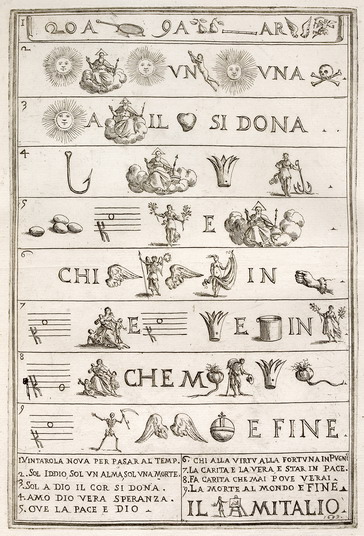 1 20 A 9A AR
2 VN VNA
3 A IL SI DONA
4
5 E
6 CHI IN
7 E E IN
8 CHE M
9 E FINE.
1. VINTAROLA NOVA PER PASAR AL TEMP.
2. SOL IDDIO SOL VN ALMA, SOL VNA MORTE.
3. SOL A DIO IL COR SI DONA.
4. AMO DIO VERA SPERANZA.
5. OVE LA PACE E DIO
6. CHI ALLA VIRTV ALLA FORTVNA IN PVGNI
7. LA CARITA E LA VERA E STAR IN PACE.
8. FA CARITA CHE MAI POVE VERAI
9. LA MORTE AL MONDO E FINE.
IL MITALIO.